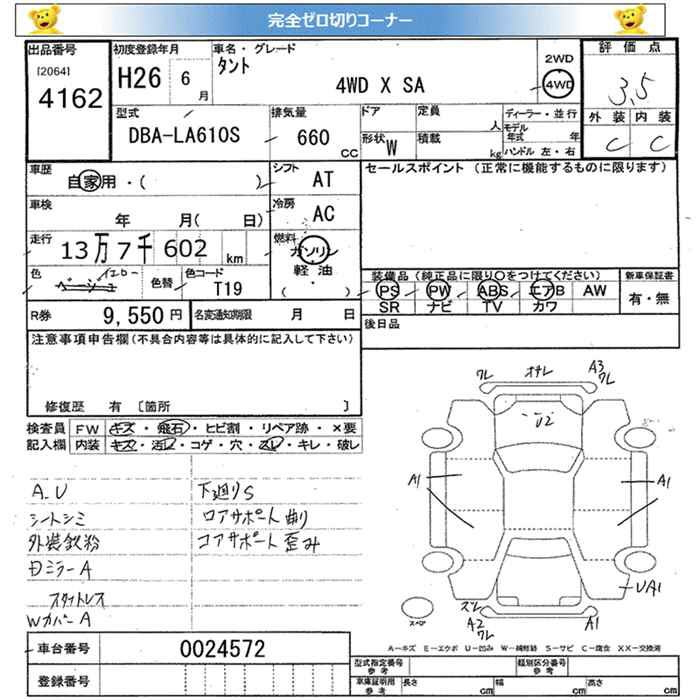 完全ゼロ切りコーナー
出品番号
[2064]
4162
初度登録年月
H26 6月
車名・グレード
タント
4WD X SA
2WD
4WD
評価点
3.5
外装 内装
C C
型式
DBA-LA610S
排気量
660 CC
ドア
定員
人
形状
W
積載
kg
ディーラー・並行
モデル年式 年
ハンドル 左・右
車歴
自家用・( )
シフト
AT
セールスポイント (正常に機能するものに限ります)
車検
年 月( 日)
冷房
AC
走行
13万7千602km
燃料
ガソリン
軽油
( ・ )
色
ベージュ
色替
色コード
T19
装備品 (純正品に限り○をつけてください)
PS PW ABS エアB AW
SR ナビ TV カワ
新車保証書
有・無
R券
9,550円
名変通知期限 月 日
後日品
注意事項申告欄(不具合内容等は具体的に記入して下さい)
修復歴 有 [箇所 ]
検査員記入欄
FW キズ・飛石・ヒビ割・リペア跡・×要
内装 キズ・汚レ・コゲ・穴・スレ・キレ・破レ
A.U
シートシミ
外装鉄粉
日ミラーA
WカバーA
下廻りS
ロアサポート曲り
コアサポート歪み
ワレ
オサレ
A3
ワレ
U2
A1
A1
UA1
スレ
A2
ワレ
A1
スペア
A-キズ E-エクボ U-凹み W-補修跡 S-サビ C-腐食 XX-交換済
車台番号
0024572
登録番号
型式指定番号
参考
類別区分番号
参考
車庫証明用
参考
長さ cm
幅 cm
高さ cm